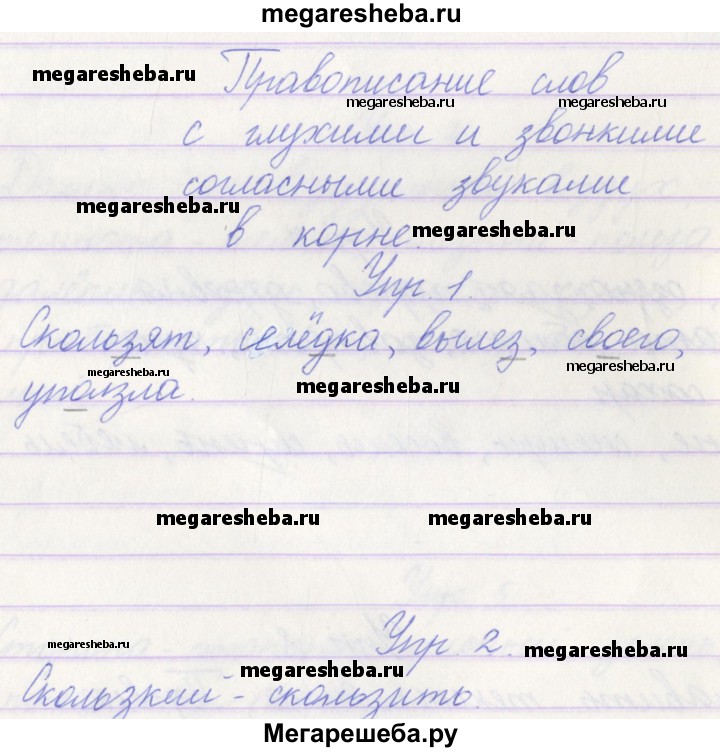 megaresheba.ru
megaresheba.ru
Правописание слов
megaresheba.ru megaresheba.ru
с глухими и звонкими
согласными звуками
megaresheba.ru
в корне. megaresheba.ru
Упр. 1.
Скользят, селёдка, вылез, своего,
megaresheba.ru
уползла. megaresheba.ru
megaresheba.ru megaresheba.ru
megaresheba.ru
Упр. 2.
megaresheba.ru megaresheba.ru
megaresheba.ru
Скользкий - скользить.
Мегарешеба.ру